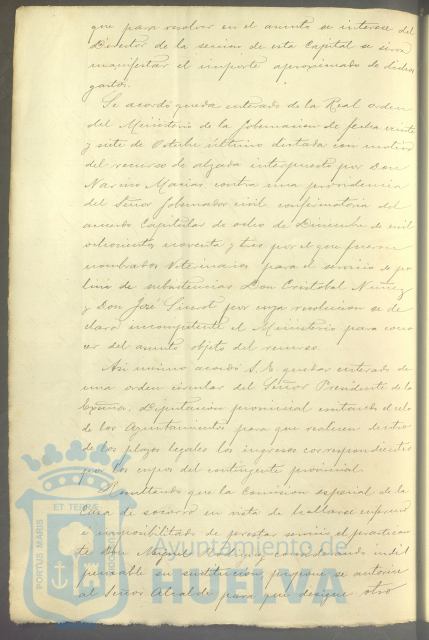 que para resolver en el asunto se interese del
Director de la sección de esta Capital se sirva
manifestar el importe aproximado de dichos
gastos.
Se acordó queda enterado de la Real orden
del Ministerio de la Gobernacion de fecha veinte
y siete de Octubre último dictada con motivo
del recurso de alzada interpuesto por Don
Narciso Macias contra una providencia
del Señor Gobernador civil confirmatoria del
acuerdo Capitular de ocho de Diciembre de mil
ochocientos noventa y tres por el que fueron
nombrados Veterinarios para el servicio de po
licia de subsistencias Don Cristobal Nuñez
y Don José por cuya resolucion se de
clara incompetente el Ministerio para cono
cer del asunto objeto del recurso.
Asi mismo acordó S. E. quedar enterado de
una orden circular del Señor Presidente de la
Excma. Diputacion provincial excitando el celo
de los Ayuntamientos para que realicen dentro
de los plazos legales los ingresos correspondientes
por los cupos del contingente provincial.
Resultando que la Comision especial de la
Casa de socorro en vista de hallarse enfermo
é imposibilitado de prestar servicio el practican
te Don Miguel y considerando indis
pensable su sustitucion propone se autorice
al Señor Alcalde para que designe otro
PORTUS MARIS ET TERRE CUSTODIA
Ayuntamiento de
HUELVA